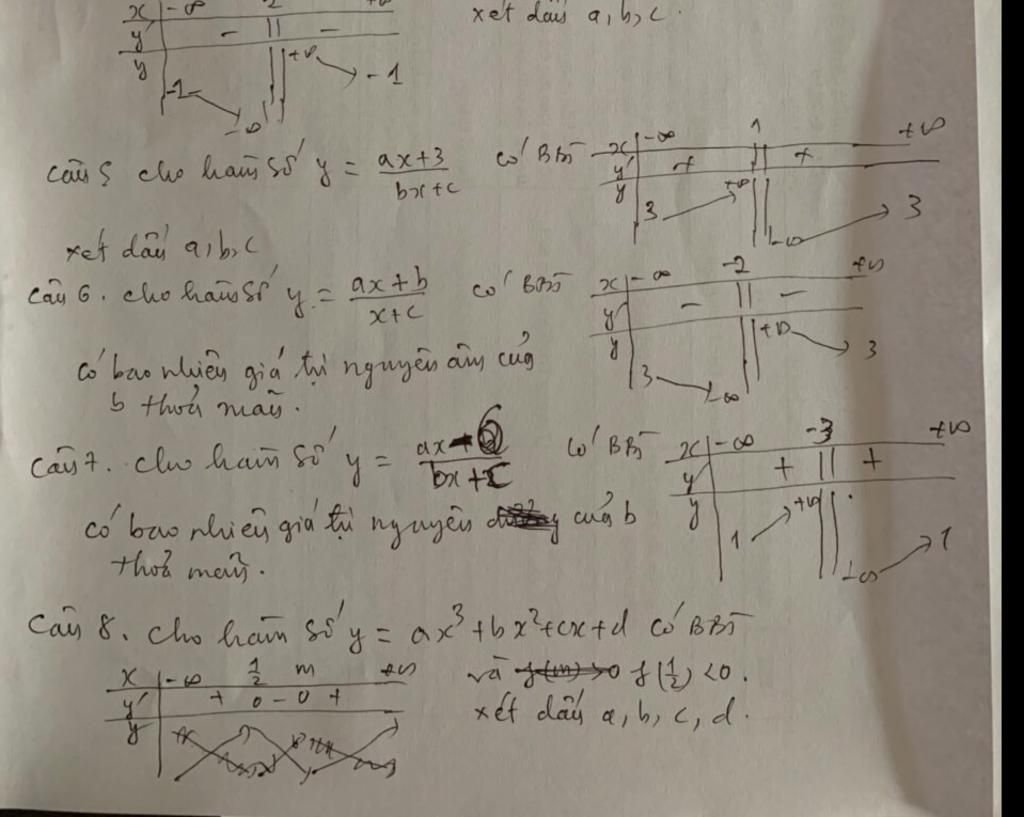 x -∞ 2 +∞
xét dấu a, b, c.
y' - || -
y -1 -∞ +∞ -1
Câu 5 cho hàm số y = (ax+3)/(bx+c) có BBT
x -∞ 1 +∞
y' + || +
y 3 +∞ -∞ 3
xét dấu a, b, c
Câu 6. cho hàm số y = (ax+b)/(x+c) có BBT
x -∞ -2 +∞
y' - || -
y 3 -∞ +∞ 3
có bao nhiêu giá trị nguyên âm của
b thoả mãn.
Câu 7. cho hàm số y = (ax-6)/(bx+c) có BBT
x -∞ -3 +∞
y' + || +
y 1 +∞ -∞ 1
có bao nhiêu giá trị nguyên của b
thoả mãn.
Câu 8. cho hàm số y = ax³+bx²+cx+d có BBT
x -∞ 1/2 m +∞
y' + 0 - 0 +
y
và f(m)>0 f(1/2) <0.
xét dấu a, b, c, d.